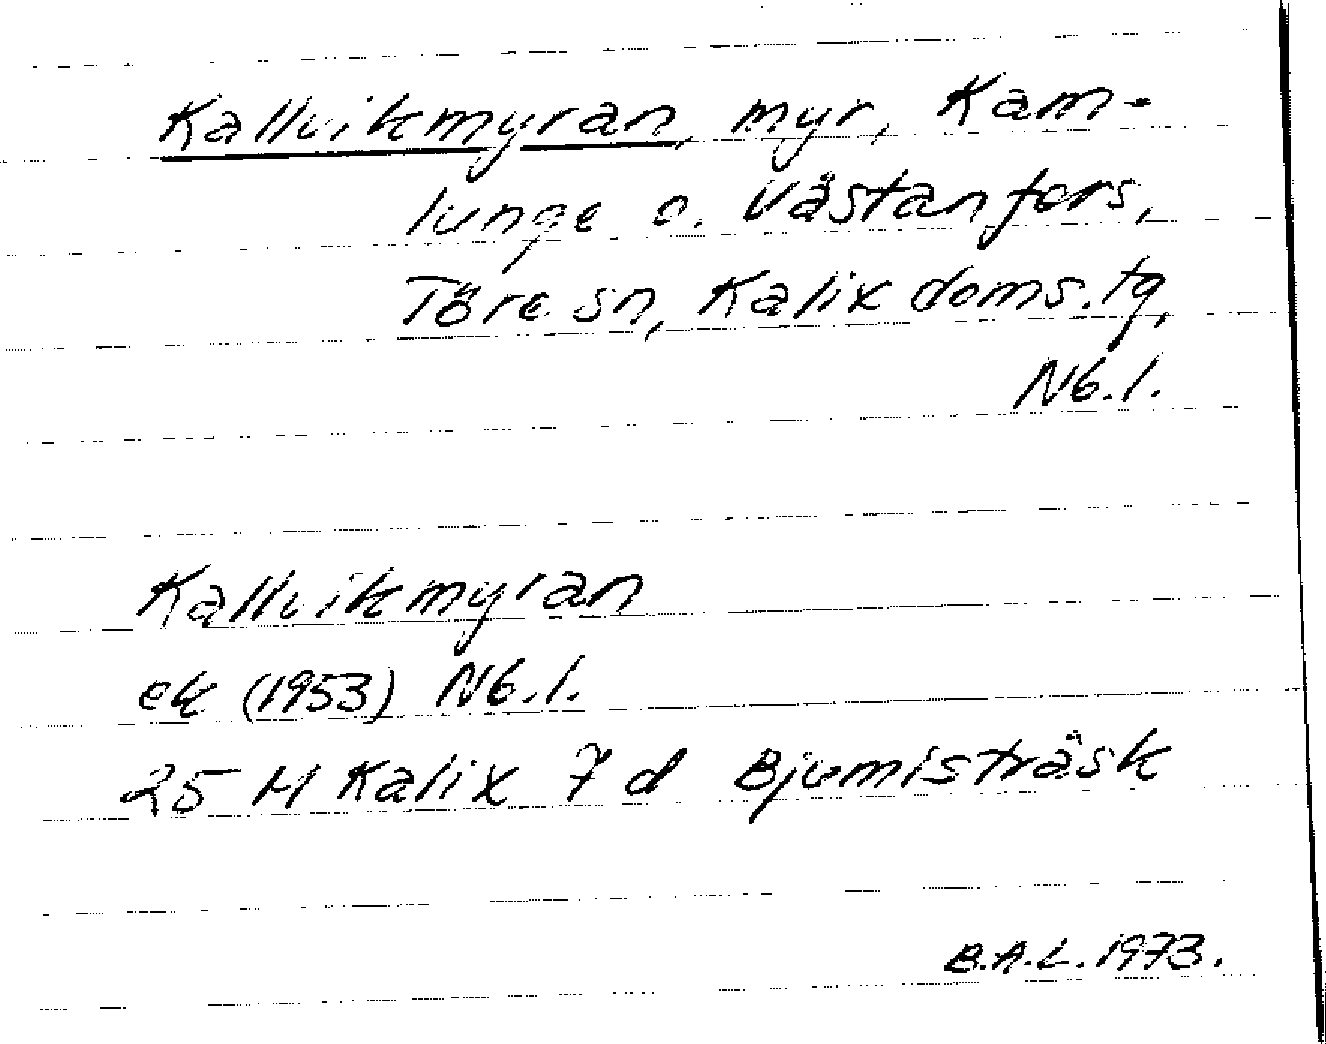 Kallvikmyran, myr, Kam-
lunge o. Västanfors,
Töre sn, Kalix doms.tg,
Nb.l.
Kallvikmyran
ek (1953) Nb.l.
25 M Kalix 7 d Bjumisträsk
B.A.L. 1973.